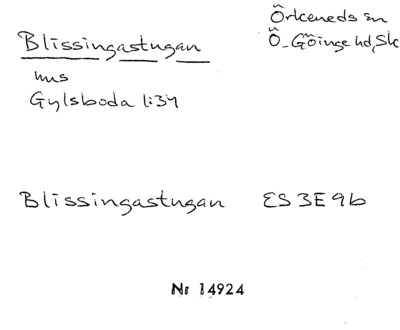 Blissingastugan
Örkeneds sn
Ö. Göinge hd, Sk
hus
Gylsboda 1:34
Blissingastugan ES 3E 9b
Nr 14924